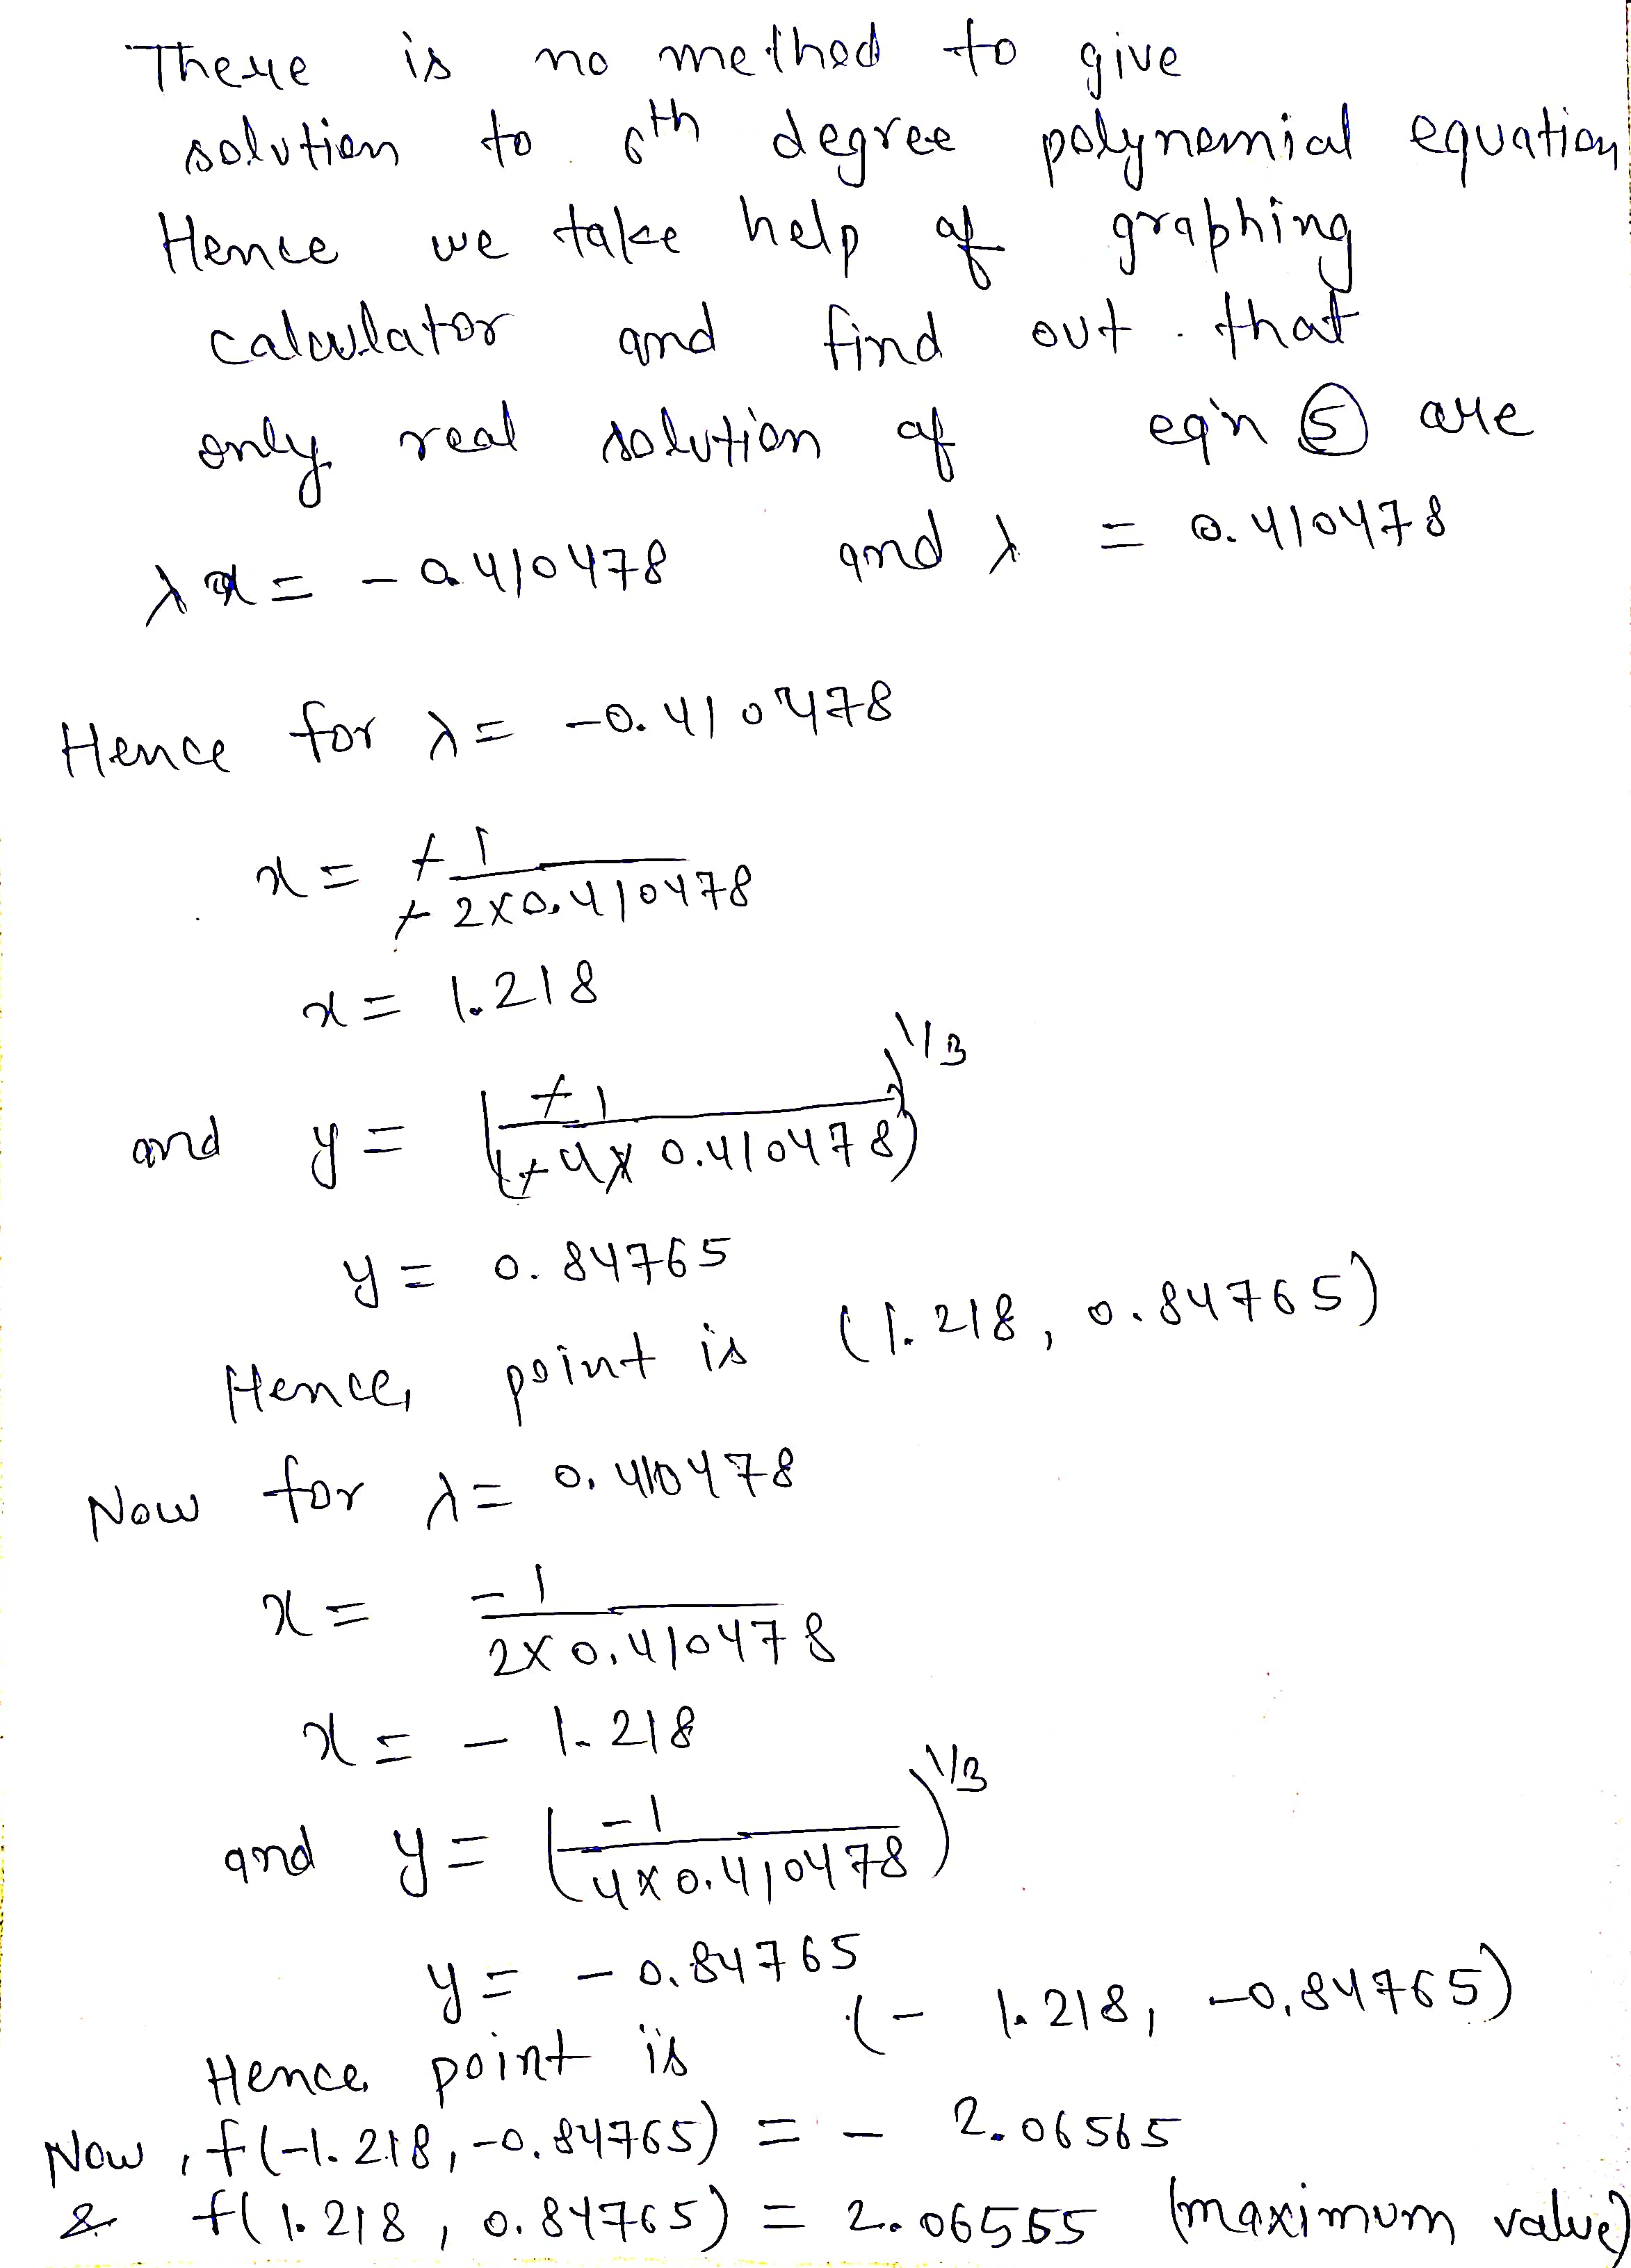 There is no method to give
solution to 6th degree polynomial equation
Hence we take help of graphing
calculator and find out that
only real solution of eq'n ⑤ are
λ = -0.410478 and λ = 0.410478
Hence for λ = -0.410478
x = +1 / +2×0.410478
x = 1.218
and y = (+1 / +4×0.410478)^1/3
y = 0.84765
Hence, point is (1.218, 0.84765)
Now for λ = 0.410478
x = -1 / 2×0.410478
x = - 1.218
and y = (-1 / 4×0.410478)^1/3
y = -0.84765
Hence point is (- 1.218, -0.84765)
Now, f(-1.218, -0.84765) = - 2.06565
& f(1.218, 0.84765) = 2.06565 (maximum value)